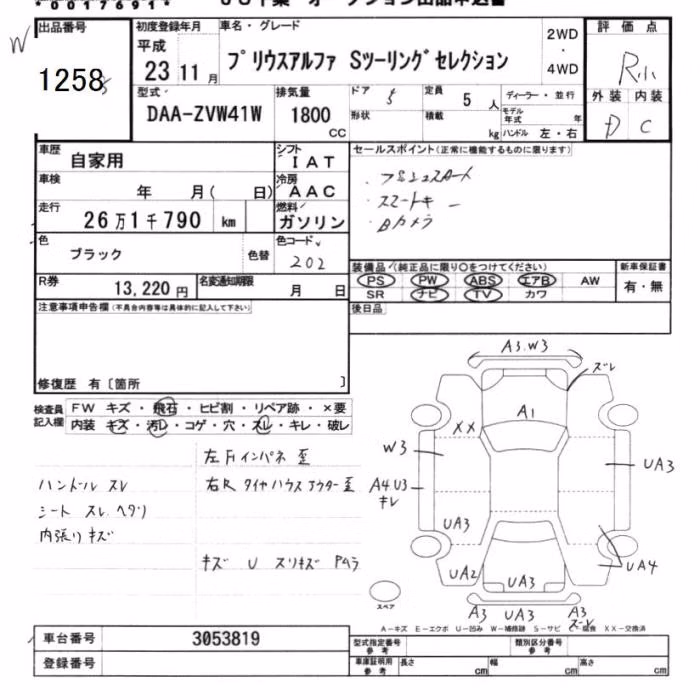 *00176913*
W
出品番号
1258
初度登録年月
平成
23 11 月
車名・グレード
プリウスアルファ Sツーリングセレクション
2WD
・
4WD
評価点
R小
外装 内装
D C
型式
DAA-ZVW41W
排気量
1800
CC
ドア 5
形状
定員 5 人
積載 kg
ディーラー・並行
モデル年式 年
ハンドル 左・右
車歴
自家用
シフト
IAT
車検
年 月( 日)
冷房
AAC
走行
26万1千790 km
燃料
ガソリン
色
ブラック
色替
色コード
202
R券
13,220円
名変通知期限
月 日
セールスポイント(正常に機能するものに限ります)
・プッシュスタート
・スマートキー
・Bカメラ
装備品(純正品に限り〇をつけてください)
PS PW ABS エアB AW
SR ナビ TV カワ
新車保証書
有・無
後日品
注意事項申告欄(不具合内容等は具体的に記入して下さい)
修復歴 有〔箇所 〕
検査員
記入欄
FW キズ・飛石・ヒビ割・リペア跡・×要
内装 キズ・汚レ・コゲ・穴・スレ・キレ・破レ
左Fインパネ 歪
ハンドル スレ
右R タイヤハウス アウター歪
シート スレ ヘタリ
内張り キズ
キズ U スリキズ Pムラ
A3.W3
ズレ
A1
XX
W3
UA3
A4.U3
キレ
UA3
UA4
UA2
UA3
スペア
A3
UA3
A3
ズレ
A-キズ E-エクボ U-凹み W-補修跡 S-サビ C-腐食 XX-交換済
車台番号
3053819
登録番号
型式指定番号
参考
類別区分番号
参考
車庫証明用
参考
長さ cm
幅 cm
高さ cm